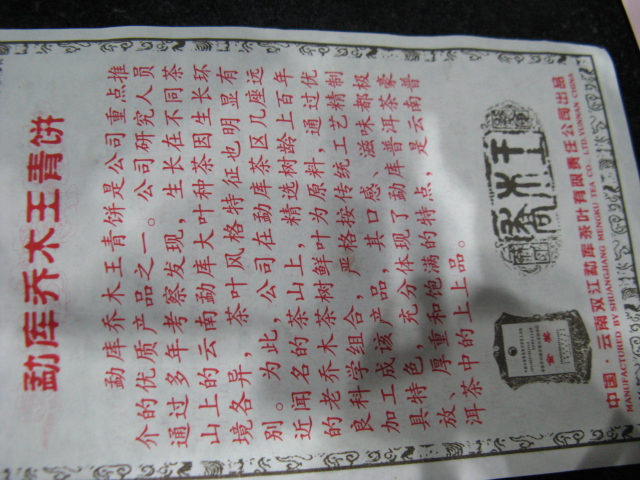 勐库乔木王青饼
勐库乔木王青饼是公司重点推
介的优质产品之一。公司研究人员
通过多年考察发现，生长在不同茶
山上的云南勐库大叶种茶因生长环
境各异，茶叶风格特征也明显有
别。为此，公司在勐库茶区几座远
近闻名的茶山上，精选树龄上百年
的老乔木茶树鲜叶为原料，通过优
良科学组合，严格按传统工艺精制
加工成该产品，其口感、滋味都极
具特色，充分体现了勐库普洱茶豪
放、厚重和饱满的特点，是云南普
洱茶中的上上品。
喬木王
金奖
中国·云南双江勐库茶叶有限责任公司出品
MANUFACTURED BY SHUANGJIANG MENGKU TEA CO., LTD YUNNAN CHINA